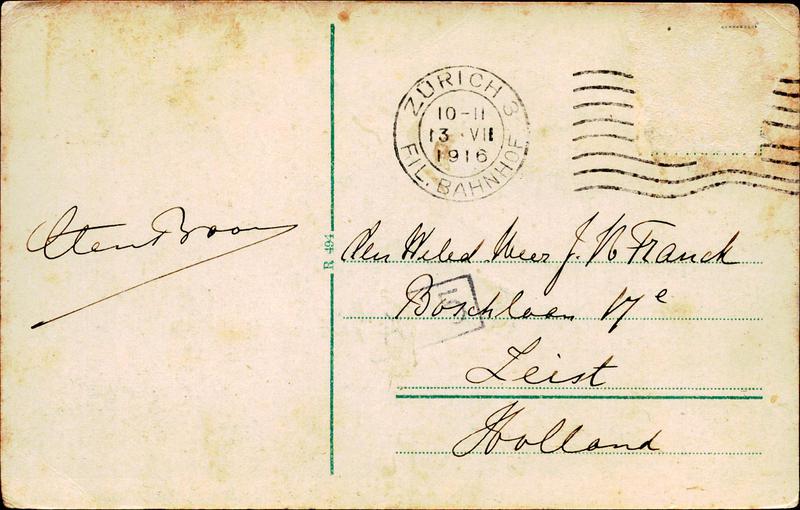 ZÜRICH 3
10-11
13 VII
1916
FIL. BAHNHOF
R 494
Den Weled. Heer J. H. Franck
Boschlaan 17e
Zeist
Holland